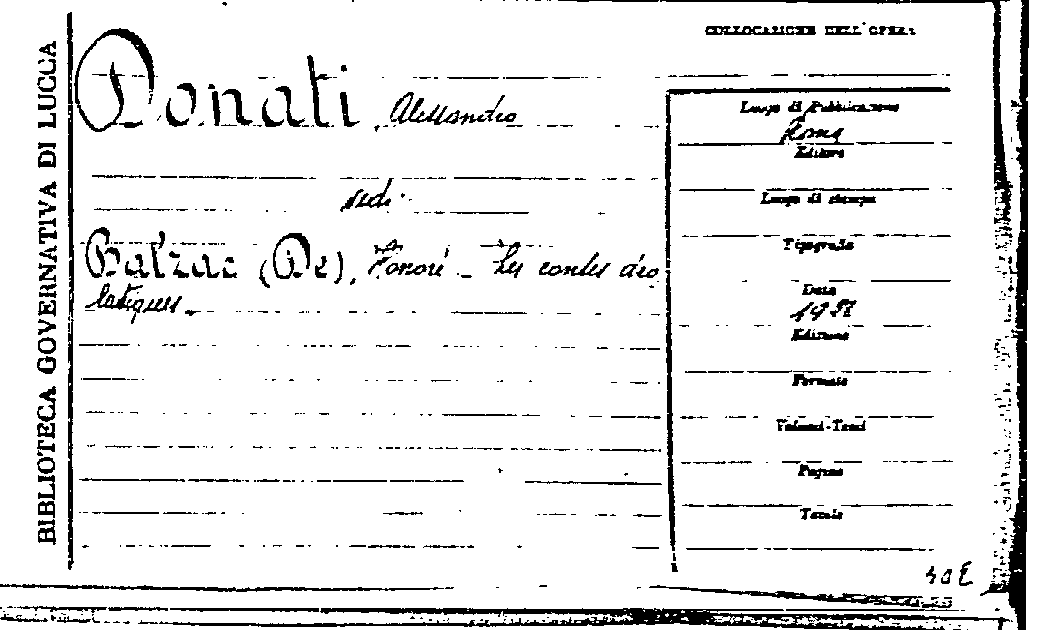 BIBLIOTECA GOVERNATIVA DI LUCCA
COLLOCAZIONE DELL'OPERA
Donati, Alessandro
vedi
Balzac (De), Honoré - Les contes dro
latiques.
Luogo di Pubblicazione
Roma
Editore
Luogo di stampa
Tipografia
Data
Edizione
Formato
Volumi-Tomi
Pagine
Tavole